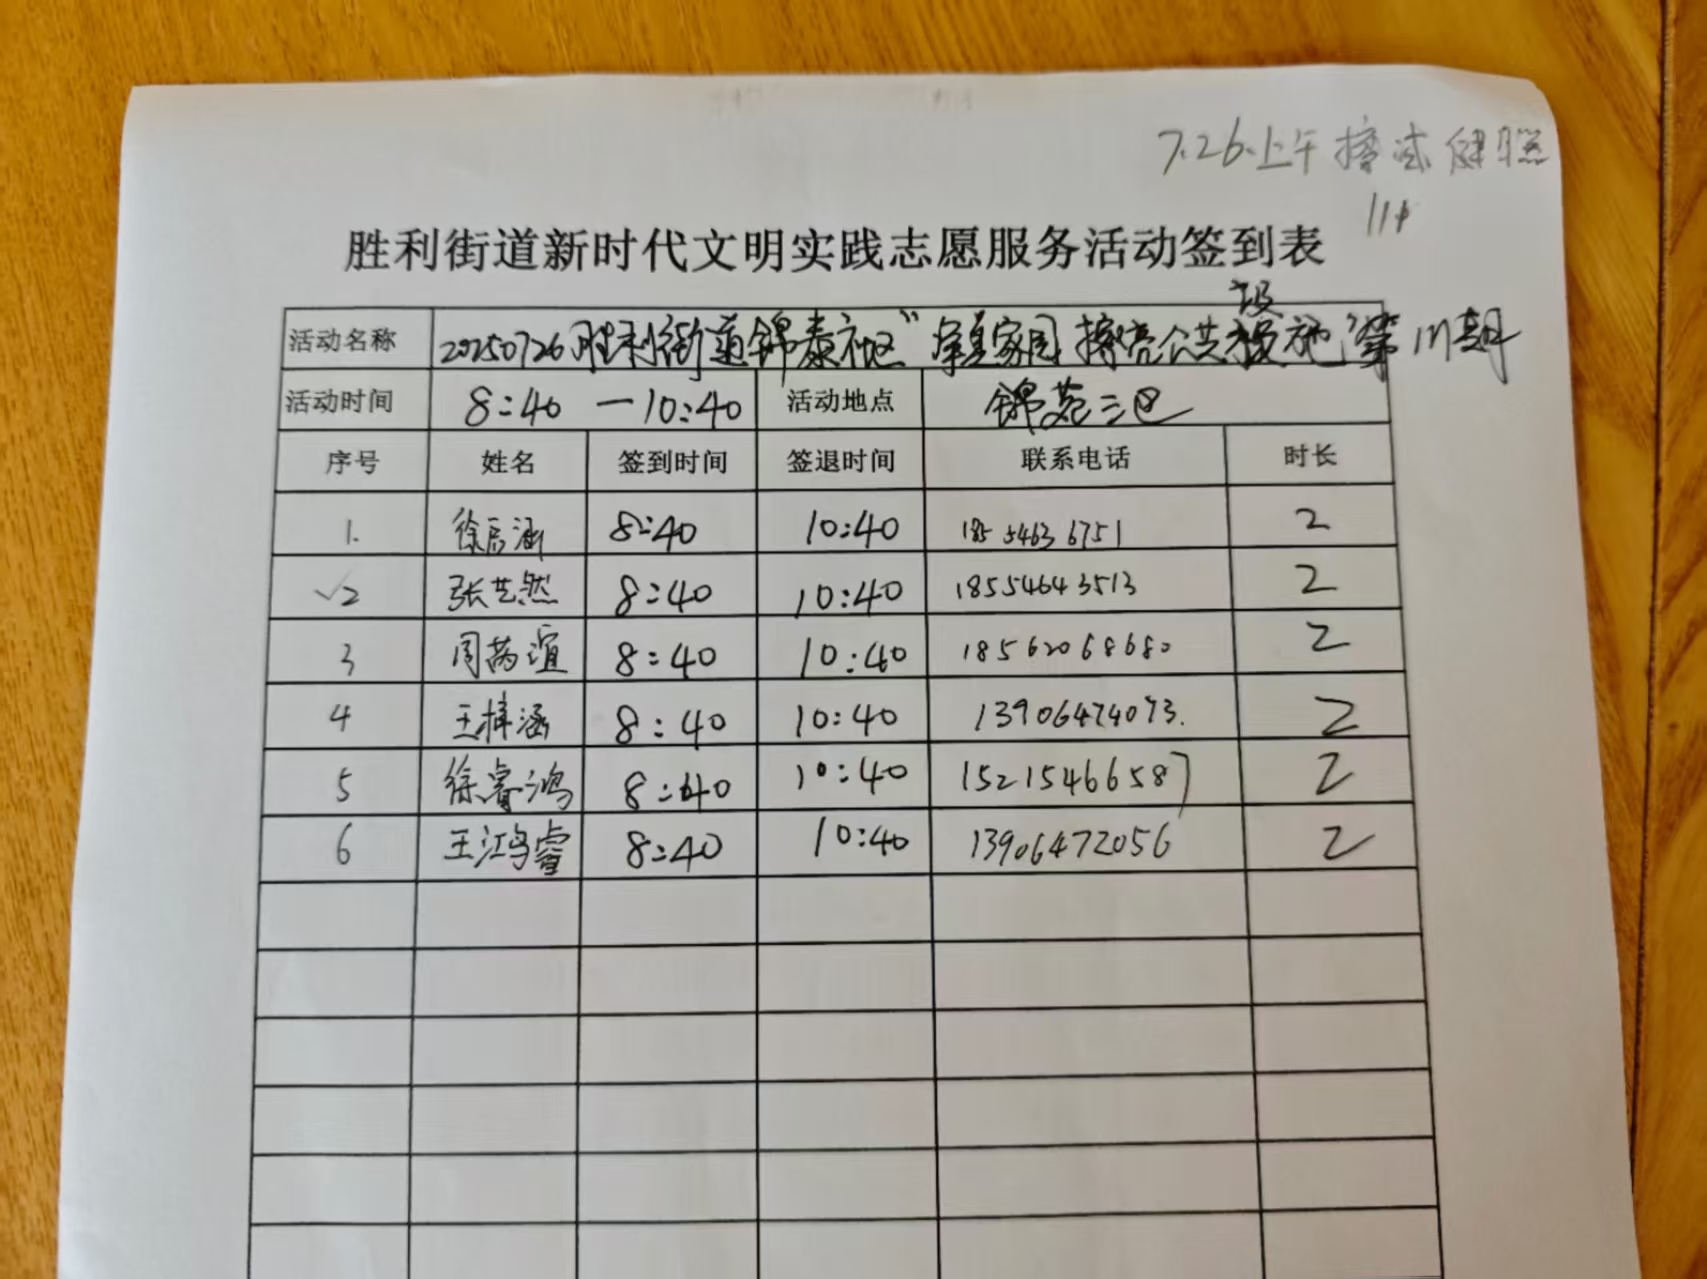 7.26.上午 擦拭健
胜利街道新时代文明实践志愿服务活动签到表
设
活动名称 20250726胜利街道锦泰社区“ 家园 擦亮公共施”第 期
活动时间 8:40 —10:40 活动地点 锦苑三区
序号 姓名 签到时间 签退时间 联系电话 时长
1. 徐辰涵 8:40 10:40 185 5463 6751 2
√2 张艺然 8:40 10:40 18554643513 2
3 周芮谊 8:40 10:40 18562068680 2
4 王梓涵 8:40 10:40 13906474073. 2
5 徐睿鸿 8:40 10:40 15215466587 2
6 王江鸿睿 8:40 10:40 13906472056 2